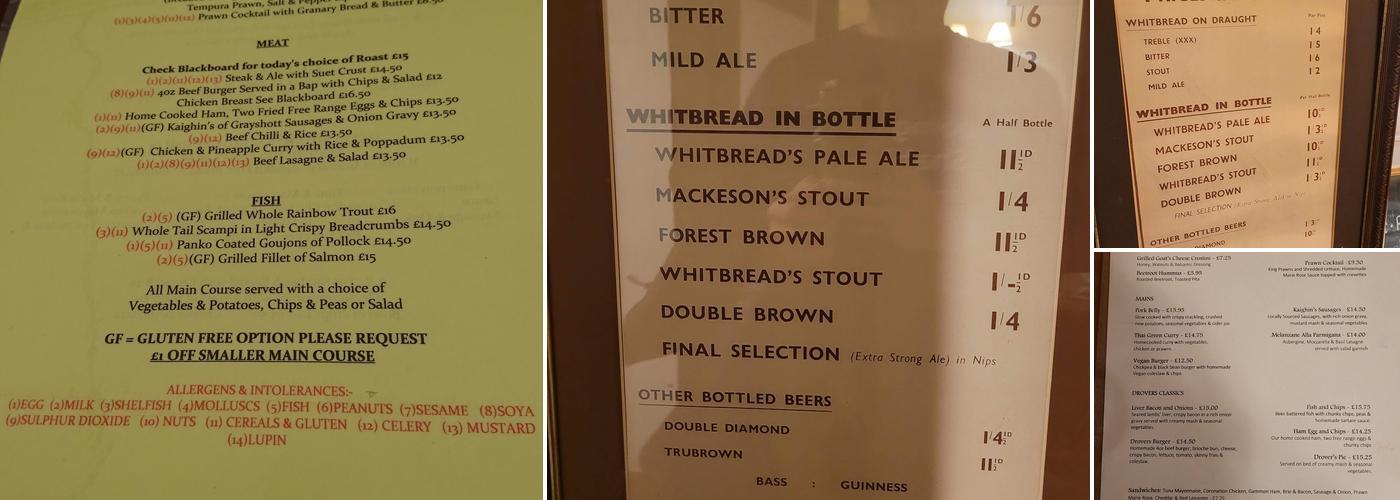 Tempura Prawn, Salt & Pepper
(1)(3)(4)(5)(11)(12) Prawn Cocktail with Granary Bread & Butter £8.50
MEAT
Check Blackboard for today's choice of Roast £15
(1)(2)(11)(12)(13) Steak & Ale with Suet Crust £14.50
(8)(9)(11) 4oz Beef Burger Served in a Bap with Chips & Salad £12
Chicken Breast See Blackboard £16.50
(1)(11) Home Cooked Ham, Two Fried Free Range Eggs & Chips £13.50
(2)(9)(11)(GF) Kaighin's of Grayshott Sausages & Onion Gravy £13.50
(9)(12) Beef Chilli & Rice £13.50
(9)(12)(GF) Chicken & Pineapple Curry with Rice & Poppadum £13.50
(1)(2)(8)(9)(11)(12)(13) Beef Lasagne & Salad £13.50
FISH
(2)(5) (GF) Grilled Whole Rainbow Trout £16
(3)(11) Whole Tail Scampi in Light Crispy Breadcrumbs £14.50
(1)(5)(11) Panko Coated Goujons of Pollock £14.50
(2)(5)(GF) Grilled Fillet of Salmon £15
All Main Course served with a choice of
Vegetables & Potatoes, Chips & Peas or Salad
GF = GLUTEN FREE OPTION PLEASE REQUEST
£1 OFF SMALLER MAIN COURSE
ALLERGENS & INTOLERANCES:-
(1)EGG (2)MILK (3)SHELFISH (4)MOLLUSCS (5)FISH (6)PEANUTS (7)SESAME (8)SOYA
(9)SULPHUR DIOXIDE (10) NUTS (11) CEREALS & GLUTEN (12) CELERY (13) MUSTARD
(14)LUPIN
BITTER 1/6
MILD ALE 1/3
WHITBREAD IN BOTTLE A Half Bottle
WHITBREAD'S PALE ALE 11½D
MACKESON'S STOUT 1/4
FOREST BROWN 11½D
WHITBREAD'S STOUT 1/-½D
DOUBLE BROWN 1/4
FINAL SELECTION (Extra Strong Ale) in Nips
OTHER BOTTLED BEERS
DOUBLE DIAMOND 1/4½D
TRUBROWN 11½D
BASS : GUINNESS
WHITBREAD ON DRAUGHT Per Pint
TREBLE (XXX) 1 4
BITTER 1 5
STOUT 1 6
MILD ALE 1 2
WHITBREAD IN BOTTLE Per Half Bottle
WHITBREAD'S PALE ALE 10½D
MACKESON'S STOUT 1 3½D
FOREST BROWN 10½D
WHITBREAD'S STOUT 11½D
DOUBLE BROWN 1 3½D
FINAL SELECTION (Extra Strong Ale) in Nips
OTHER BOTTLED BEERS
DIAMOND
Grilled Goat's Cheese Crostini - £7.25
Honey, Walnuts & Balsamic Dressing
Beetroot Hummus - £5.95
Roasted Beetroot, Toasted Pita
Prawn Cocktail - £9.50
King Prawns and Shredded Lettuce, Homemade
Marie Rose Sauce topped with crevettes
MAINS
Pork Belly - £15.95
Slow cooked with crispy crackling, crushed
new potatoes, seasonal vegetables & cider jus
Thai Green Curry - £14.75
Homecooked curry with vegetables,
chicken or prawn
Vegan Burger - £12.50
Chickpea & black bean burger with homemade
Vegan coleslaw & chips
Kaighin's Sausages - £14.50
Locally Sourced Sausages, with rich onion gravy,
mustard mash & seasonal vegetables
Melanzane Alla Parmigana - £14.00
Aubergine, Mozzarella & Basil Lasagne
served with salad garnish
DROVERS CLASSICS
Liver Bacon and Onions - £15.00
Seared lambs' liver, crispy bacon in a rich onion
gravy served with creamy mash & seasonal
vegetables.
Drovers Burger - £14.50
Homemade 4oz beef burger, brioche bun, cheese,
crispy bacon, lettuce, tomato, skinny fries &
coleslaw.
Fish and Chips - £15.75
Beer battered fish with chunky chips, peas &
homemade tartare sauce.
Ham Egg and Chips - £14.25
Our home cooked ham, two free range eggs &
chunky chips
Drover's Pie - £15.25
Served on bed of creamy mash & seasonal
vegetables.
Sandwiches: Tuna Mayonnaise, Coronation Chicken, Gammon Ham, Brie & Bacon, Sausage & Onion, Prawn
Marie Rose, Cheddar & Red Leicester - £7.25